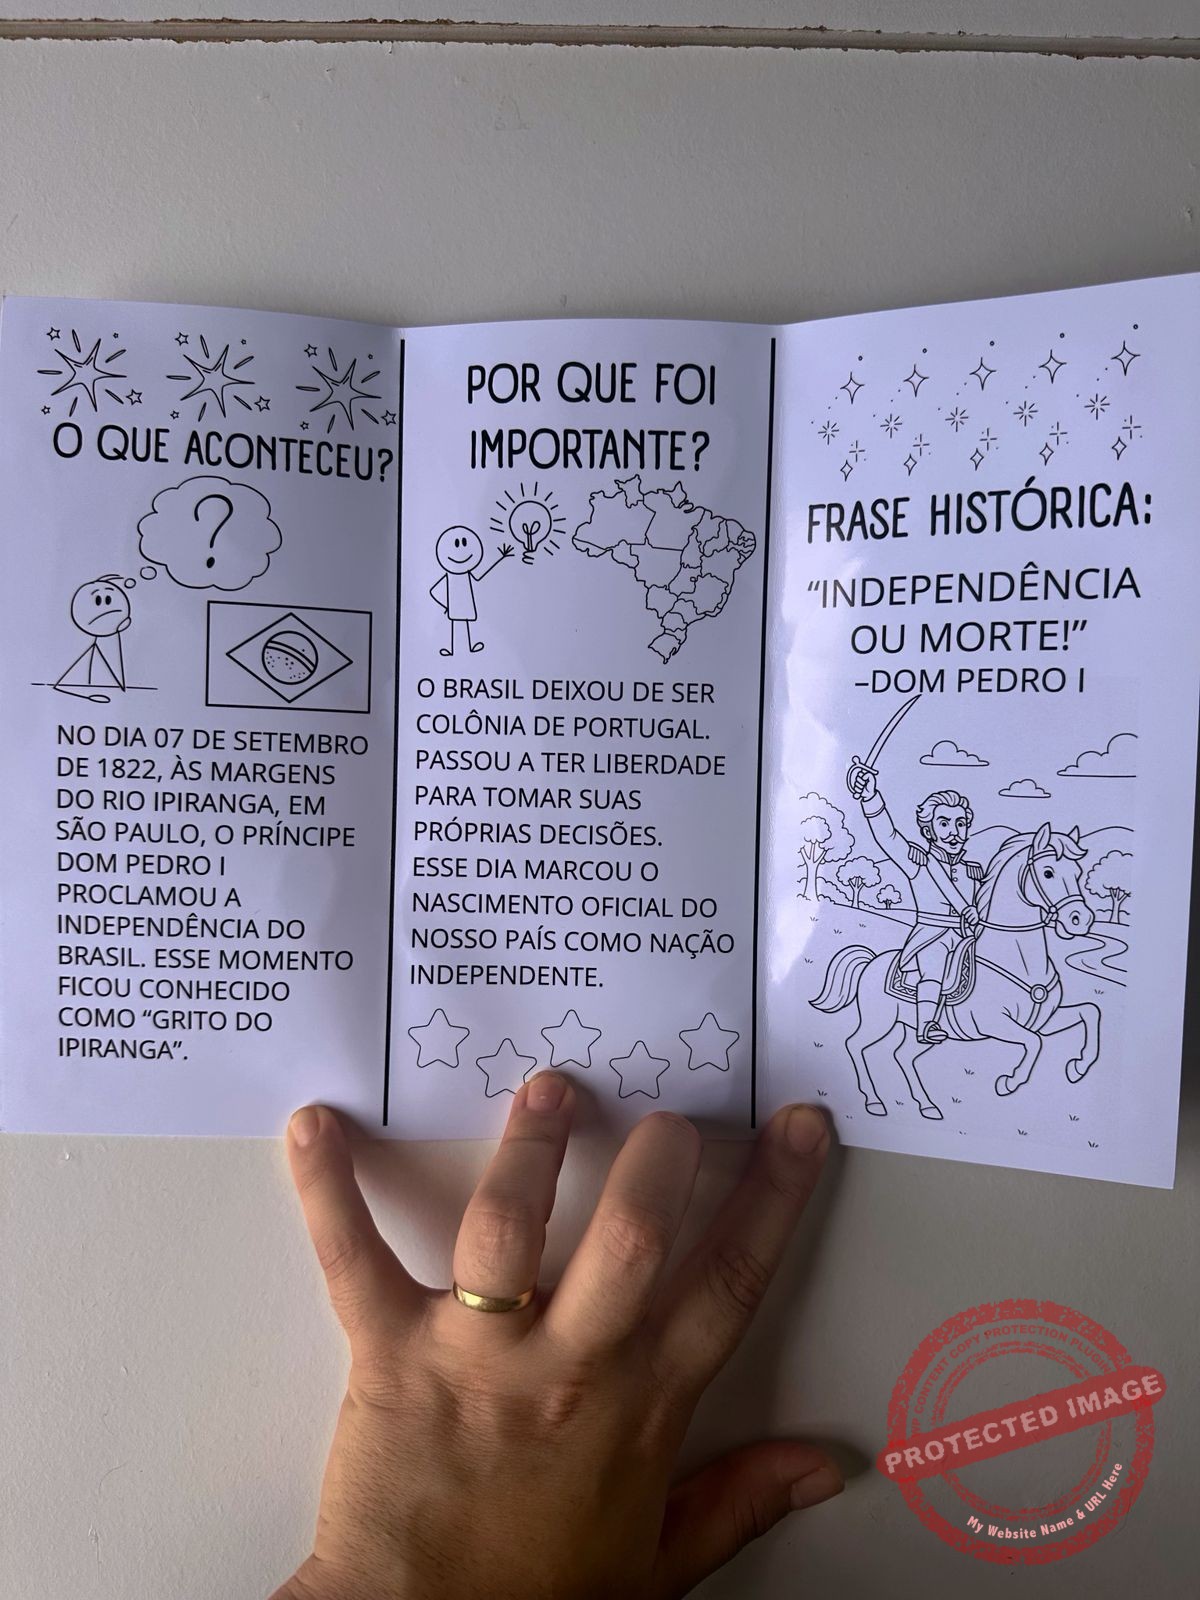 O QUE ACONTECEU?
?
NO DIA 07 DE SETEMBRO
DE 1822, ÀS MARGENS
DO RIO IPIRANGA, EM
SÃO PAULO, O PRÍNCIPE
DOM PEDRO I
PROCLAMOU A
INDEPENDÊNCIA DO
BRASIL. ESSE MOMENTO
FICOU CONHECIDO
COMO “GRITO DO
IPIRANGA”.
POR QUE FOI
IMPORTANTE?
O BRASIL DEIXOU DE SER
COLÔNIA DE PORTUGAL.
PASSOU A TER LIBERDADE
PARA TOMAR SUAS
PRÓPRIAS DECISÕES.
ESSE DIA MARCOU O
NASCIMENTO OFICIAL DO
NOSSO PAÍS COMO NAÇÃO
INDEPENDENTE.
FRASE HISTÓRICA:
“INDEPENDÊNCIA
OU MORTE!”
–DOM PEDRO I
WP CONTENT COPY PROTECTION PLUGIN
PROTECTED IMAGE
My Website Name & URL Here